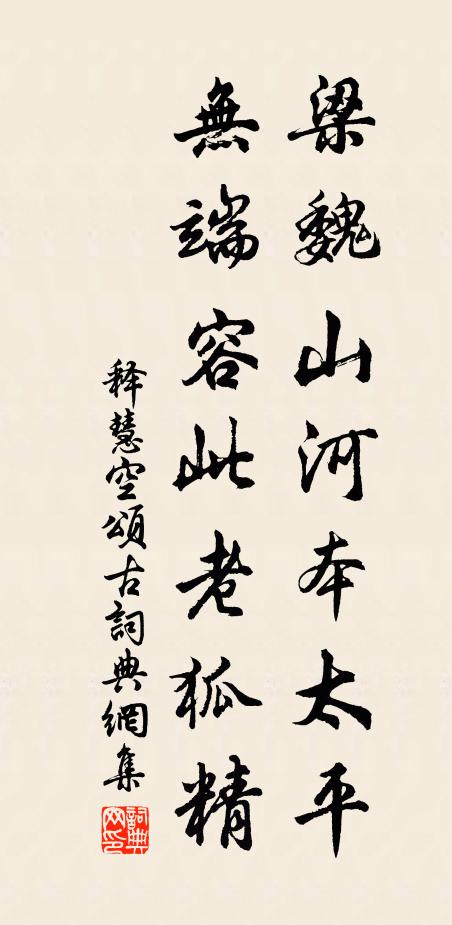 梁魏山河本太平
無端容此老狐精
释慧空頌古詞典網集
詞典網印